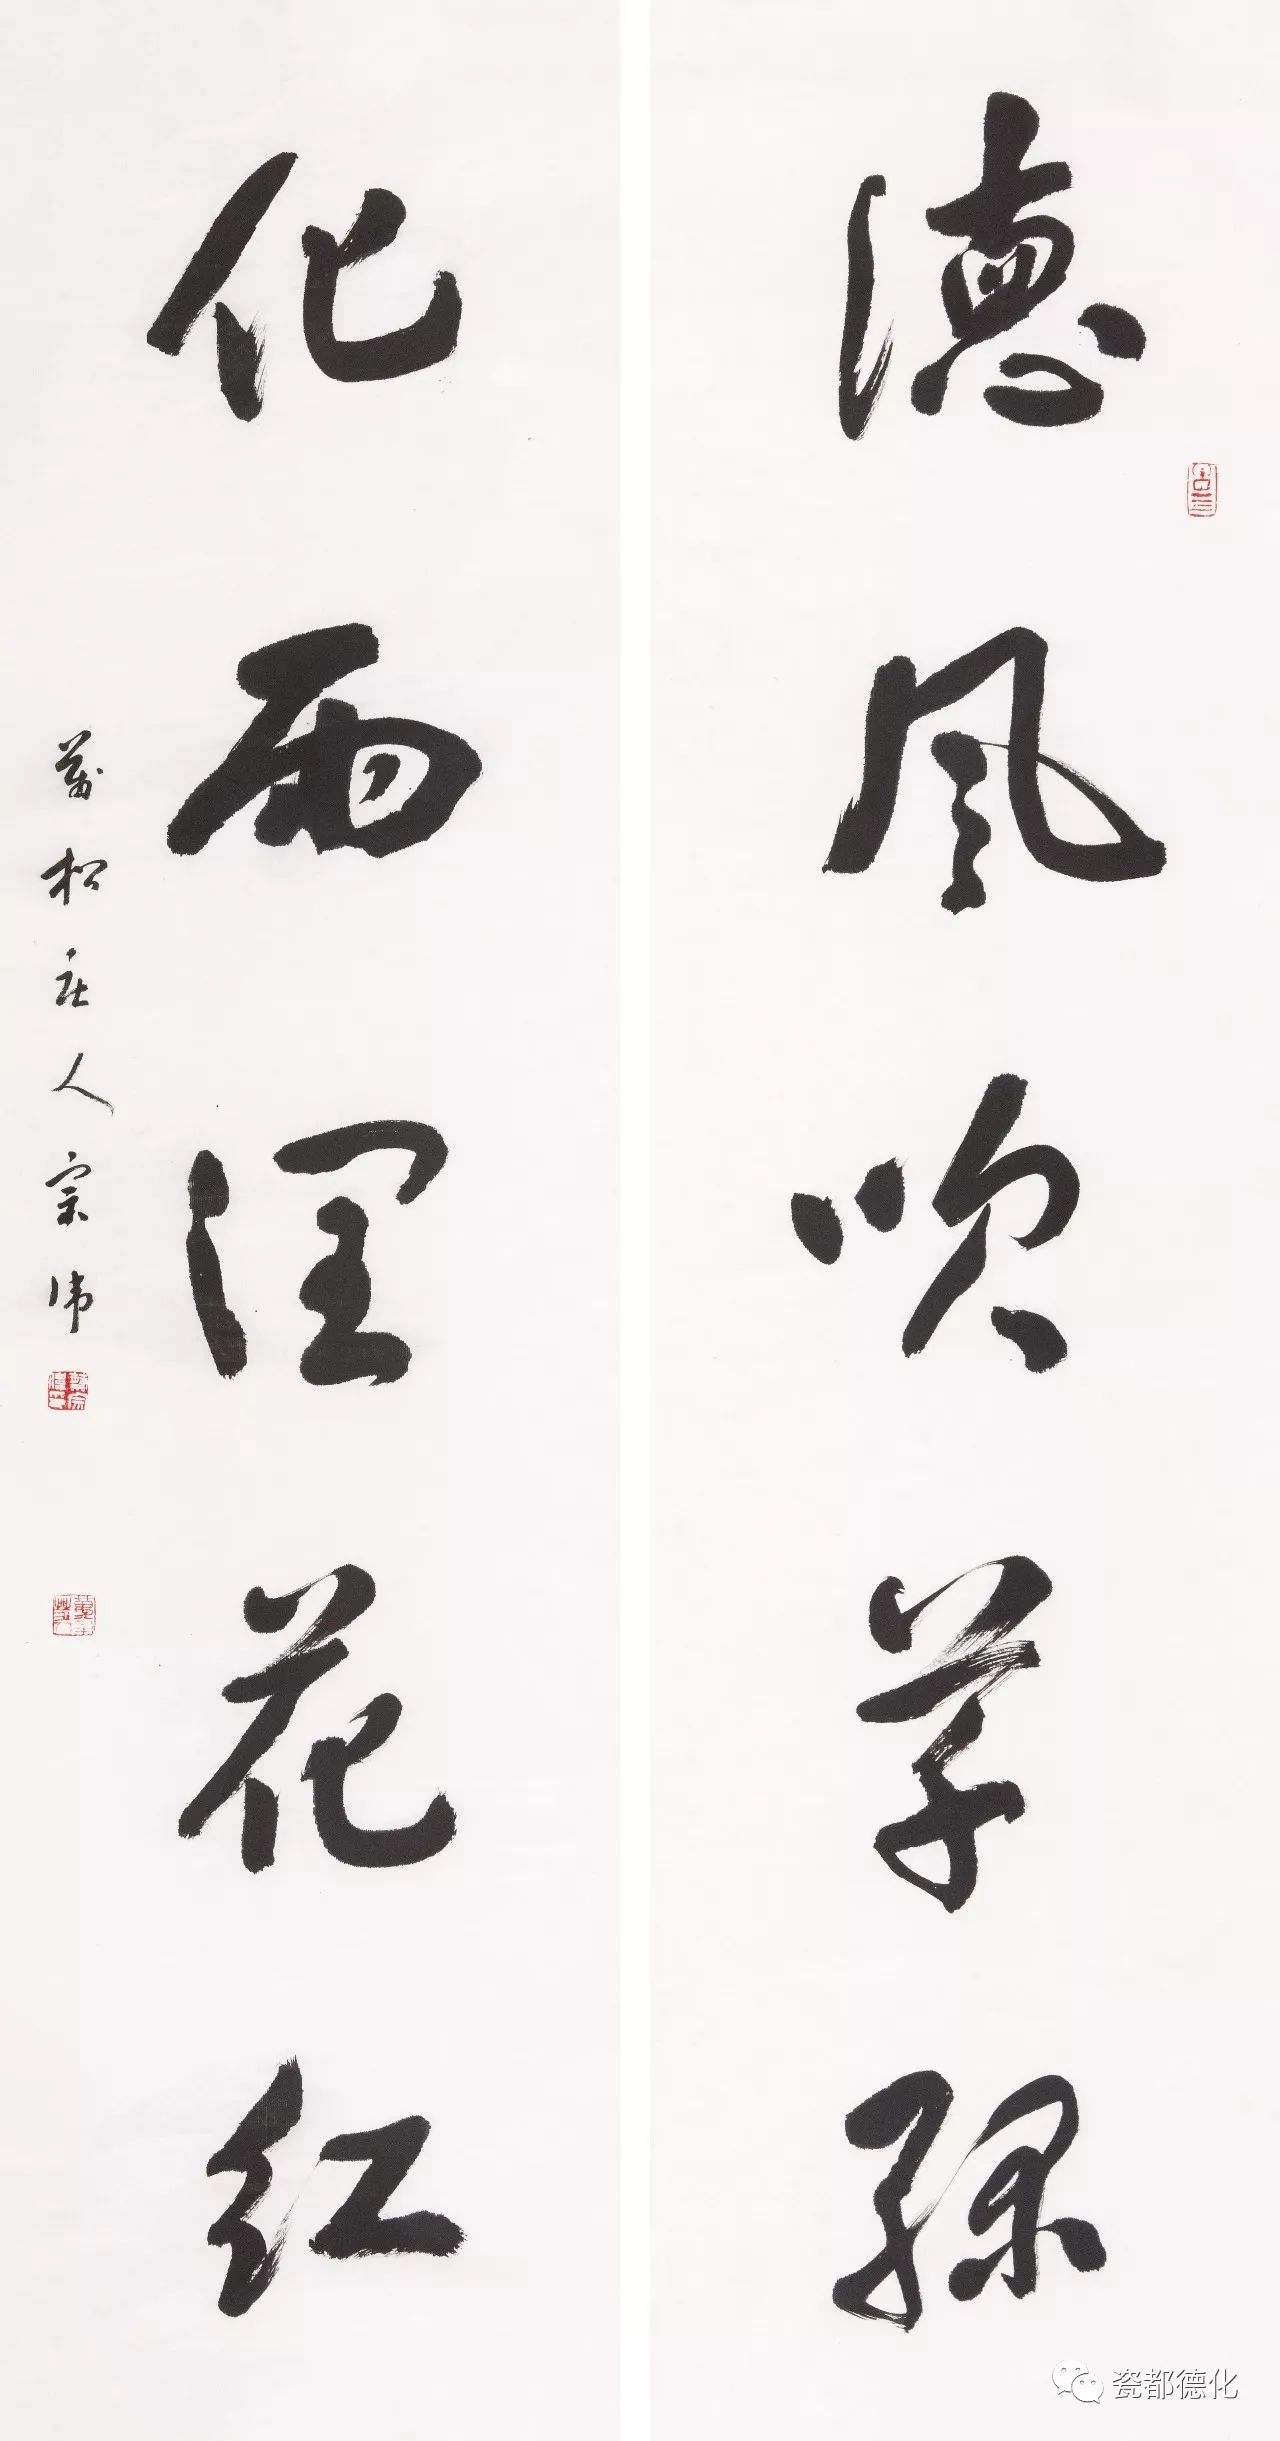 德風吹草绿
化雨润花红
萬松庄人宗伟
瓷都德化